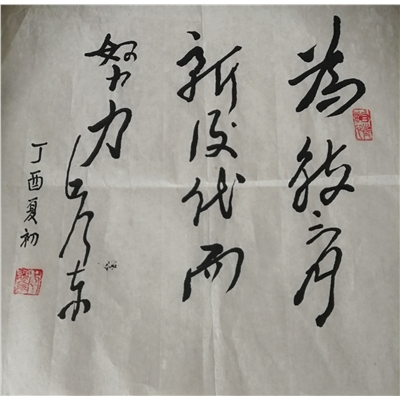 為教育
新後代而
努力 毛泽东
丁酉夏初